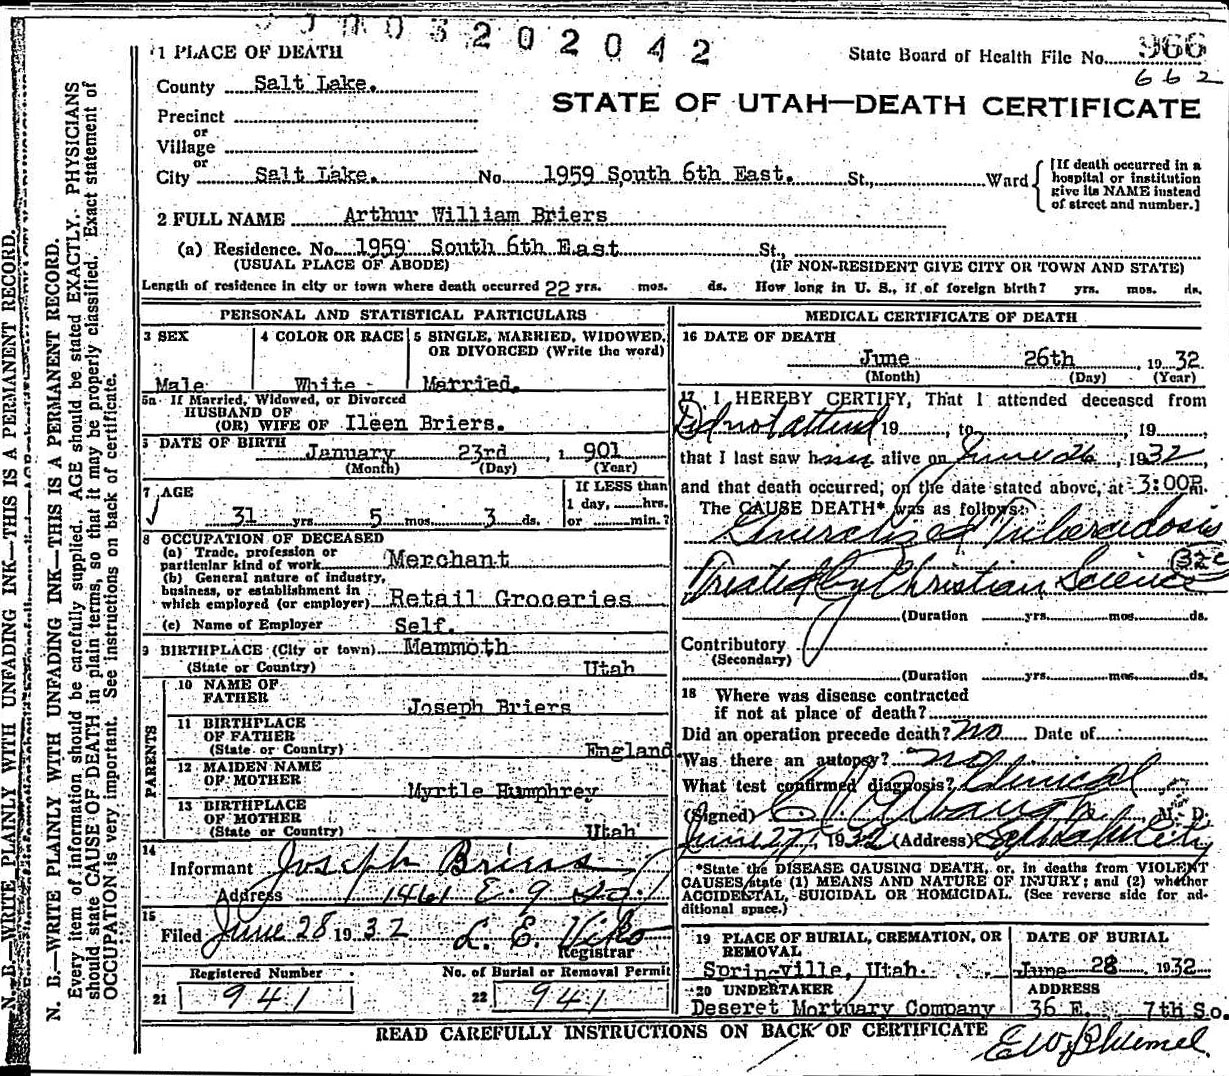 3202042
1 PLACE OF DEATH
State Board of Health File No. 966
662
County Salt Lake.
STATE OF UTAH—DEATH CERTIFICATE
Precinct
or
Village
or
City Salt Lake. No. 1959 South 6th East. St., Ward
[If death occurred in a hospital or institution give its NAME instead of street and number.]
2 FULL NAME Arthur William Briers
(a) Residence. No. 1959 South 6th East St.,
(USUAL PLACE OF ABODE) (IF NON-RESIDENT GIVE CITY OR TOWN AND STATE)
Length of residence in city or town where death occurred 22 yrs. mos. ds. How long in U. S., if of foreign birth? yrs. mos. ds.
PERSONAL AND STATISTICAL PARTICULARS
3 SEX
Male
4 COLOR OR RACE
White
5 SINGLE, MARRIED, WIDOWED, OR DIVORCED (Write the word)
Married.
5a If Married, Widowed, or Divorced
HUSBAND OF
(OR) WIFE OF Ileen Briers.
DATE OF BIRTH
January 23rd, 1901
(Month) (Day) (Year)
7 AGE
31 yrs. 5 mos. 3 ds.
If LESS than
1 day, hrs.
or min.?
8 OCCUPATION OF DECEASED
(a) Trade, profession or
particular kind of work Merchant
(b) General nature of industry,
business, or establishment in
which employed (or employer) Retail Groceries
(c) Name of Employer Self.
9 BIRTHPLACE (City or town) Mammoth
(State or Country) Utah
PARENTS
10 NAME OF
FATHER Joseph Briers
11 BIRTHPLACE
OF FATHER
(State or Country) England
12 MAIDEN NAME
OF MOTHER Myrtle Humphrey
13 BIRTHPLACE
OF MOTHER
(State or Country) Utah
14
Informant Joseph Briers
Address 1461 E. 9
15
Filed June 28 1932 L. E. Viko
Registrar
Registered Number No. of Burial or Removal Permit
21 941 22 941
MEDICAL CERTIFICATE OF DEATH
16 DATE OF DEATH
June 26th, 1932
(Month) (Day) (Year)
17 I HEREBY CERTIFY, That I attended deceased from
Did not attend 19, to, 19,
that I last saw him alive on June 26, 1932,
and that death occurred, on the date stated above, at 3:00P m.
The CAUSE DEATH* was as follows:
Generalized Tuberculosis
322
Treated by Christian Science
(Duration yrs. mos. ds.
Contributory
(Secondary)
(Duration yrs. mos. ds.
18 Where was disease contracted
if not at place of death?
Did an operation precede death? No Date of
Was there an autopsy? no
What test confirmed diagnosis? Clinical
(Signed) M. D.
June 27, 1932 (Address) Salt Lake City
*State the DISEASE CAUSING DEATH, or, in deaths from VIOLENT
CAUSES, state (1) MEANS AND NATURE OF INJURY; and (2) whether
ACCIDENTAL, SUICIDAL OR HOMICIDAL. (See reverse side for ad-
ditional space.)
19 PLACE OF BURIAL, CREMATION, OR REMOVAL
Springville, Utah.
DATE OF BURIAL
June 28 1932
20 UNDERTAKER
Deseret Mortuary Company
ADDRESS
36 E. 7th So.
READ CAREFULLY INSTRUCTIONS ON BACK OF CERTIFICATE
N. B.—WRITE PLAINLY WITH UNFADING INK—THIS IS A PERMANENT RECORD.
N. B.—WRITE PLAINLY WITH UNFADING INK—THIS IS A PERMANENT RECORD.
Every item of information should be carefully supplied. AGE should be stated EXACTLY. PHYSICIANS
should state CAUSE OF DEATH in plain terms, so that it may be properly classified. Exact statement of
OCCUPATION is very important. See instructions on back of certificate.